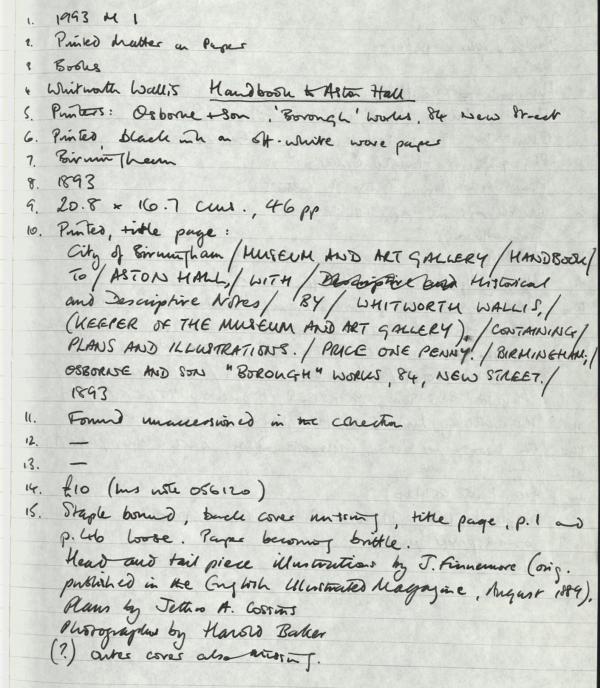 1. 1993 M 1
2. Printed Matter on Paper
3 Books
4 Whitworth Wallis Handbook to Aston Hall
5. Printers: Osborne + Son, 'Borough' Works, 84 New Street
6. Printed, black ink on off-white wove paper
7. Birmingham
8. 1893
9. 20.8 × 16.7 cms., 46 pp
10. Printed, title page:
City of Birmingham / MUSEUM AND ART GALLERY / HANDBOOK /
TO / ASTON HALL, / WITH / Descriptive and Historical
and Descriptive Notes / BY / WHITWORTH WALLIS, /
(KEEPER OF THE MUSEUM AND ART GALLERY). / CONTAINING /
PLANS AND ILLUSTRATIONS. / PRICE ONE PENNY. / BIRMINGHAM: /
OSBORNE AND SON "BOROUGH" WORKS, 84, NEW STREET. /
1893
11. Found unaccessioned in the collection
12. —
13. —
14. £10 (ins note 056120)
15. Staple bound, back cover missing, title page, p.1 and
p.46 loose. Paper becoming brittle.
Head and tail piece illustrations by J. Finnemore (orig.
published in the English Illustrated Magazine, August 1889).
Plans by Jethro A. Cossins
Photographs by Harold Baker
(?) outer cover also missing.